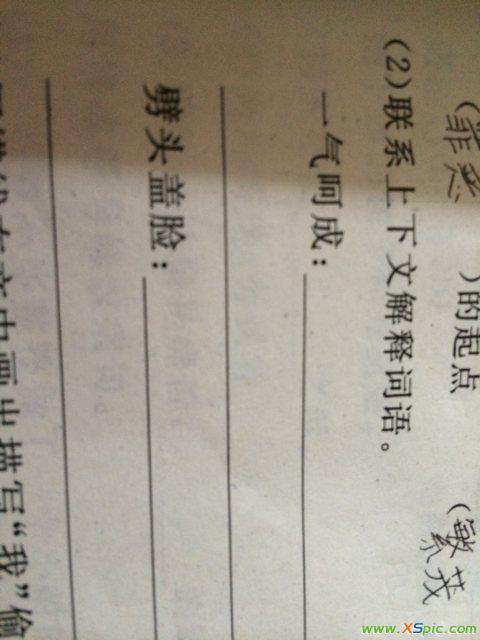 (罪恶 )的起点 (繁茂
(2)联系上下文解释词语。
一气呵成：
劈头盖脸：
在文中画出描写“我”偷
www.XSpic.com